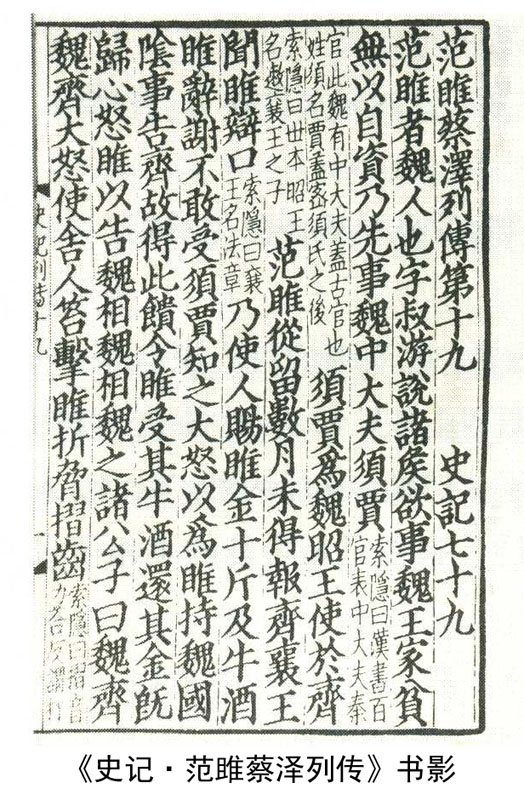 范雎蔡澤列傳第十九 史記七十九
范雎者魏人也字叔游說諸矦欲事魏王家貧
無以自資乃先事魏中大夫須賈索隱曰漢書百官表中大夫秦
官此魏有中大夫蓋古官也姓須名賈蓋宻須氏之後須賈為魏昭王使於齊
索隱曰世本昭王名遬襄王之子范雎從留數月未得報齊襄王
聞雎辯口索隱曰襄王名法章乃使人賜雎金十斤及牛酒
雎辭謝不敢受須賈知之大怒以為雎持魏國
陰事告齊故得此饋令雎受其牛酒還其金旣
歸心怒雎以告魏相魏相魏之諸公子曰魏齊
魏齊大怒使舍人笞擊雎折脅摺齒索隱曰摺音力答反謂打
史記列傳十九
《史记·范雎蔡泽列传》书影